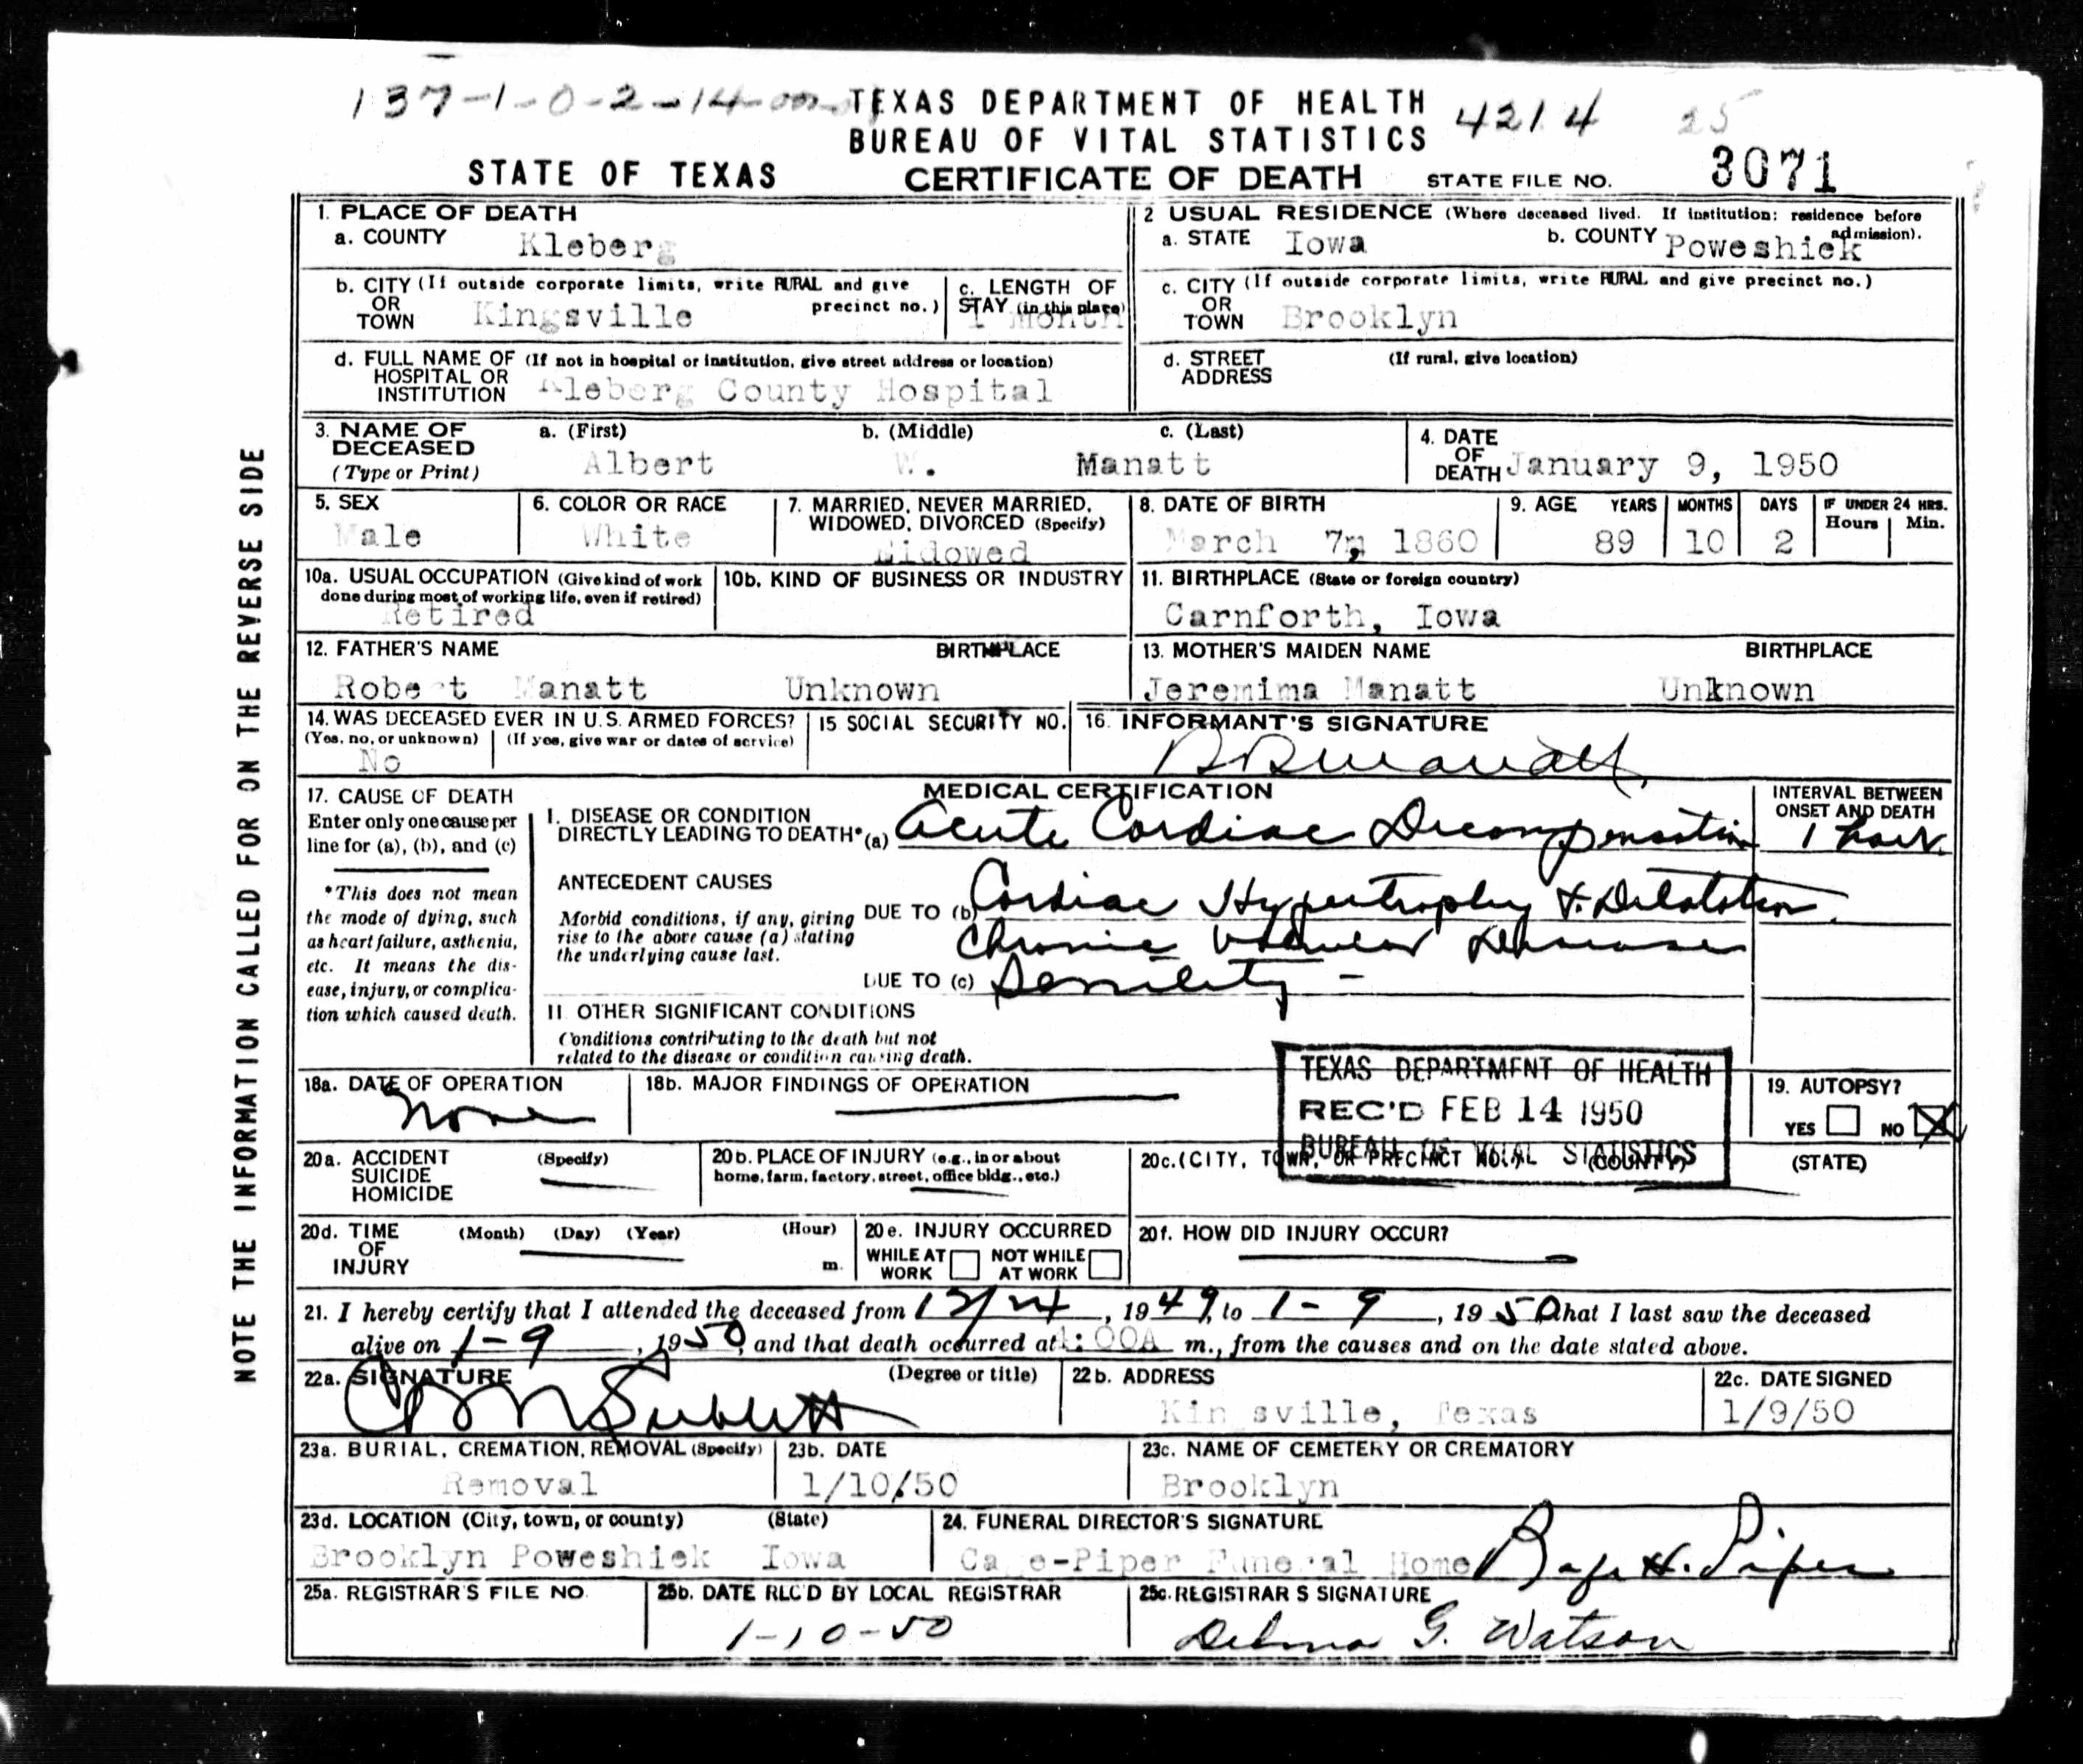 137-1-0-2-14-
TEXAS DEPARTMENT OF HEALTH 4214 25
BUREAU OF VITAL STATISTICS
STATE OF TEXAS CERTIFICATE OF DEATH STATE FILE NO. 3071
NOTE THE INFORMATION CALLED FOR ON THE REVERSE SIDE
1. PLACE OF DEATH
a. COUNTY Kleberg
2 USUAL RESIDENCE (Where deceased lived. If institution: residence before admission).
a. STATE Iowa b. COUNTY Poweshiek
b. CITY (If outside corporate limits, write RURAL and give precinct no.)
OR
TOWN Kingsville
c. LENGTH OF
STAY (in this place)
1 Month
c. CITY (If outside corporate limits, write RURAL and give precinct no.)
OR
TOWN Brooklyn
d. FULL NAME OF (If not in hospital or institution, give street address or location)
HOSPITAL OR
INSTITUTION Kleberg County Hospital
d. STREET (If rural, give location)
ADDRESS
3. NAME OF a. (First) b. (Middle) c. (Last)
DECEASED
(Type or Print) Albert W. Manatt
4. DATE
OF
DEATH January 9, 1950
5. SEX
Male
6. COLOR OR RACE
White
7. MARRIED, NEVER MARRIED,
WIDOWED, DIVORCED (Specify)
Widowed
8. DATE OF BIRTH
March 7, 1860
9. AGE YEARS MONTHS DAYS IF UNDER 24 HRS.
Hours Min.
89 10 2
10a. USUAL OCCUPATION (Give kind of work
done during most of working life, even if retired)
Retired
10b. KIND OF BUSINESS OR INDUSTRY
11. BIRTHPLACE (State or foreign country)
Carnforth, Iowa
12. FATHER'S NAME BIRTHPLACE
Robert Manatt Unknown
13. MOTHER'S MAIDEN NAME BIRTHPLACE
Jeremima Manatt Unknown
14. WAS DECEASED EVER IN U.S. ARMED FORCES?
(Yes, no, or unknown) (If yes, give war or dates of service)
No
15 SOCIAL SECURITY NO.
16. INFORMANT'S SIGNATURE
Manatt
17. CAUSE OF DEATH
Enter only one cause per
line for (a), (b), and (c)
*This does not mean
the mode of dying, such
as heart failure, asthenia,
etc. It means the dis-
ease, injury, or complica-
tion which caused death.
MEDICAL CERTIFICATION
INTERVAL BETWEEN
ONSET AND DEATH
I. DISEASE OR CONDITION
DIRECTLY LEADING TO DEATH* (a) Acute Cardiac Decompensation 1 hour
ANTECEDENT CAUSES
Morbid conditions, if any, giving
rise to the above cause (a) stating
the underlying cause last.
DUE TO (b) Cardiac Hypertrophy & Dilatation
Chronic
DUE TO (c) Senility -
II OTHER SIGNIFICANT CONDITIONS
Conditions contributing to the death but not
related to the disease or condition causing death.
18a. DATE OF OPERATION
None
18b. MAJOR FINDINGS OF OPERATION
TEXAS DEPARTMENT OF HEALTH
REC'D FEB 14 1950
BUREAU OF VITAL STATISTICS
19. AUTOPSY?
YES NO
20a. ACCIDENT (Specify)
SUICIDE
HOMICIDE
20b. PLACE OF INJURY (e.g., in or about
home, farm, factory, street, office bldg., etc.)
20c. (CITY, TOWN, OR PRECINCT NO.) (COUNTY) (STATE)
20d. TIME (Month) (Day) (Year) (Hour)
OF
INJURY m.
20e. INJURY OCCURRED
WHILE AT WORK NOT WHILE AT WORK
20f. HOW DID INJURY OCCUR?
21. I hereby certify that I attended the deceased from 12/24, 1949, to 1-9, 1950 that I last saw the deceased
alive on 1-9, 1950, and that death occurred at 1:00A m., from the causes and on the date stated above.
22a. SIGNATURE (Degree or title)
Sublett
22b. ADDRESS
Kingsville, Texas
22c. DATE SIGNED
1/9/50
23a. BURIAL, CREMATION, REMOVAL (Specify)
Removal
23b. DATE
1/10/50
23c. NAME OF CEMETERY OR CREMATORY
Brooklyn
23d. LOCATION (City, town, or county) (State)
Brooklyn Poweshiek Iowa
24. FUNERAL DIRECTOR'S SIGNATURE
Cage-Piper Funeral Home H. Piper
25a. REGISTRAR'S FILE NO.
25b. DATE REC'D BY LOCAL REGISTRAR
1-10-50
25c. REGISTRAR'S SIGNATURE
Delma G. Watson